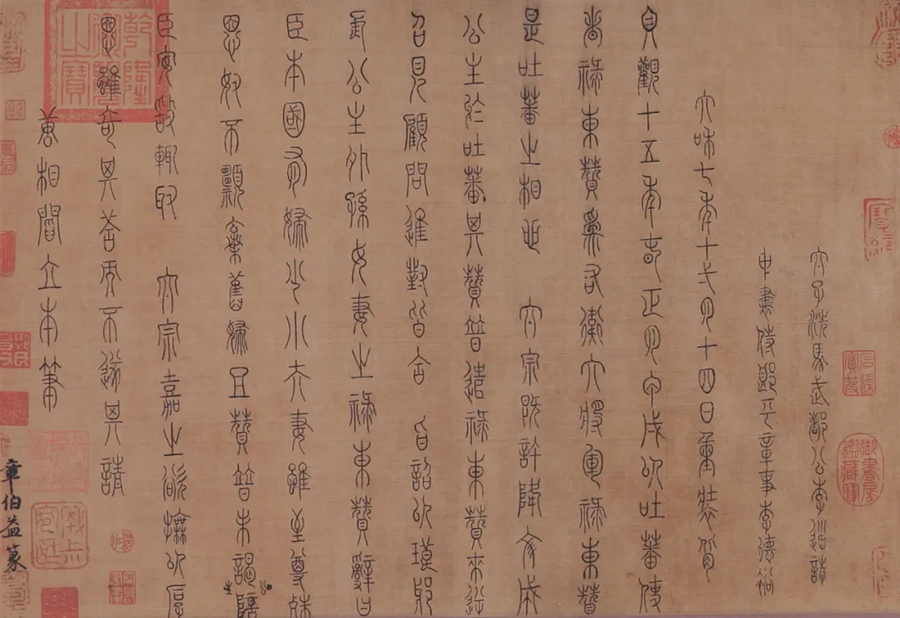 太子洗馬武都公李道誌
中書侍郎平章事李德裕
大和七年十一月十四日重裝背
貞觀十五年春正月甲戌以吐蕃使
者祿東贊為右衛大將軍祿東贊
是吐蕃之相也 太宗既許降文成
公主於吐蕃其贊普遣祿東贊來逆
召見顧問進對皆合 旨詔以琅琊
長公主外孫女妻之祿東贊辭曰
臣本國有婦少小夫妻雖至尊殊
恩奴不願棄舊婦且贊普未謁公主陪
臣安敢輒取 太宗嘉之欲撫以厚
恩雖奇其答而不遂其請
唐相閻立本筆
章伯益篆
石渠寶笈
御書房鑑藏寶
乾隆御覽之寶